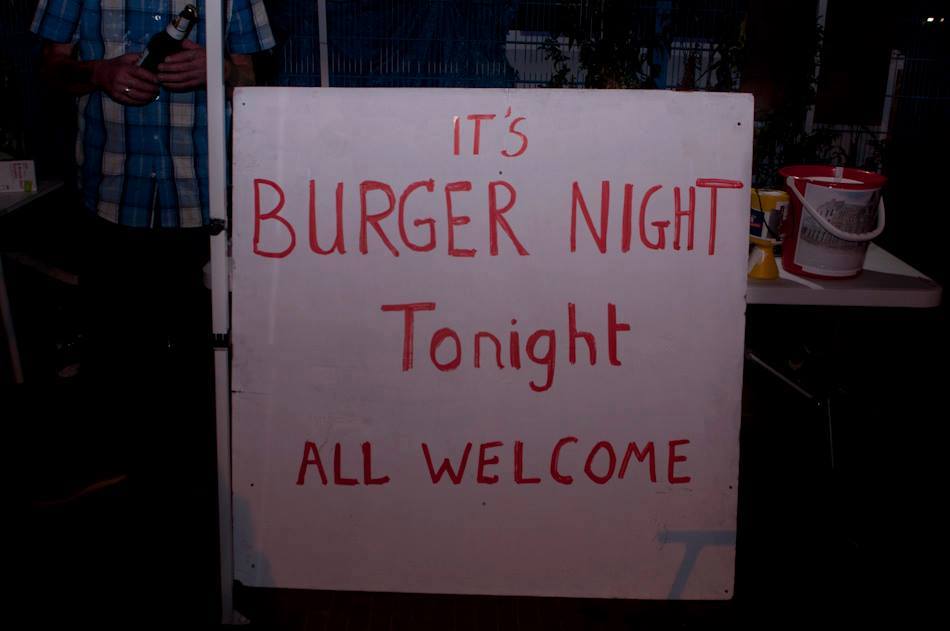 IT'S
BURGER NIGHT
Tonight
ALL WELCOME